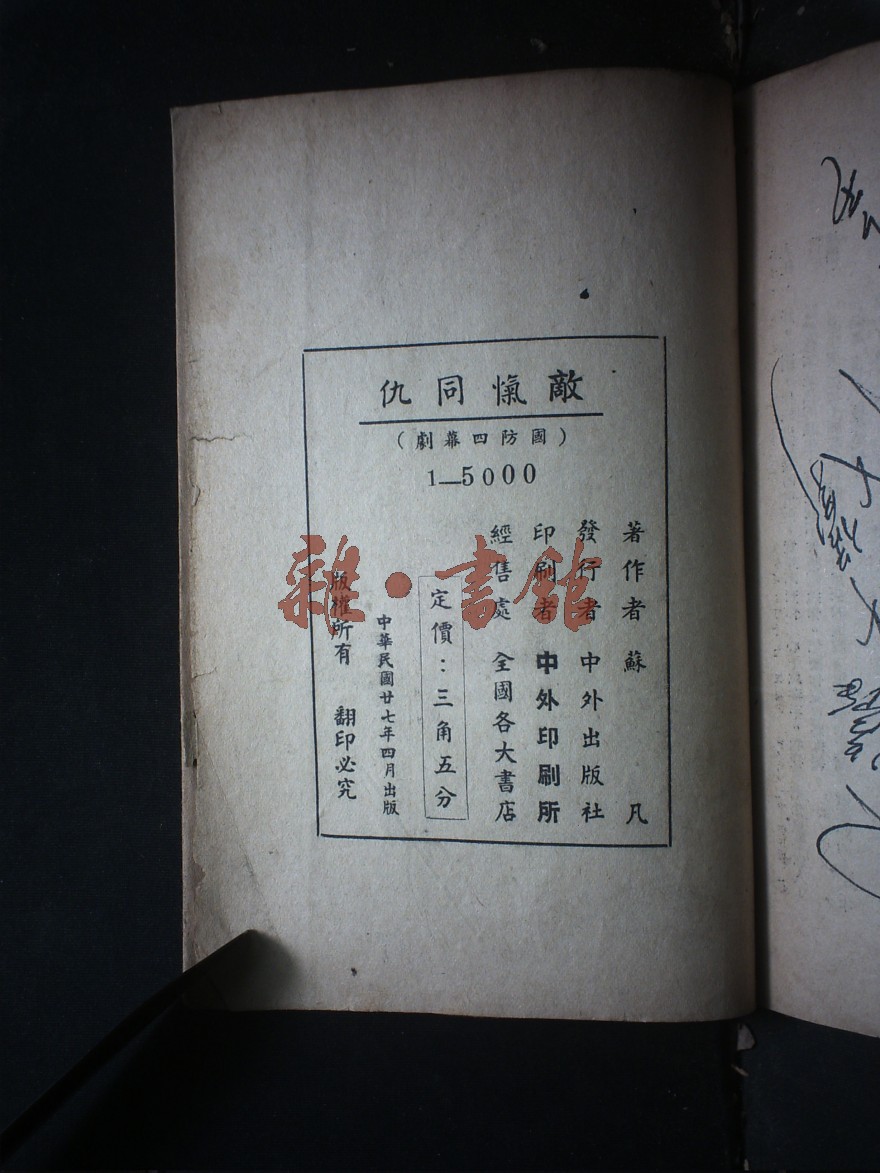 敵愾同仇
（國防四幕劇）
1—5000
著作者 蘇凡
發行者 中外出版社
印刷者 中外印刷所
經售處 全國各大書店
定價：三角五分
中華民國廿七年四月出版
版權所有 翻印必究
雜·書館